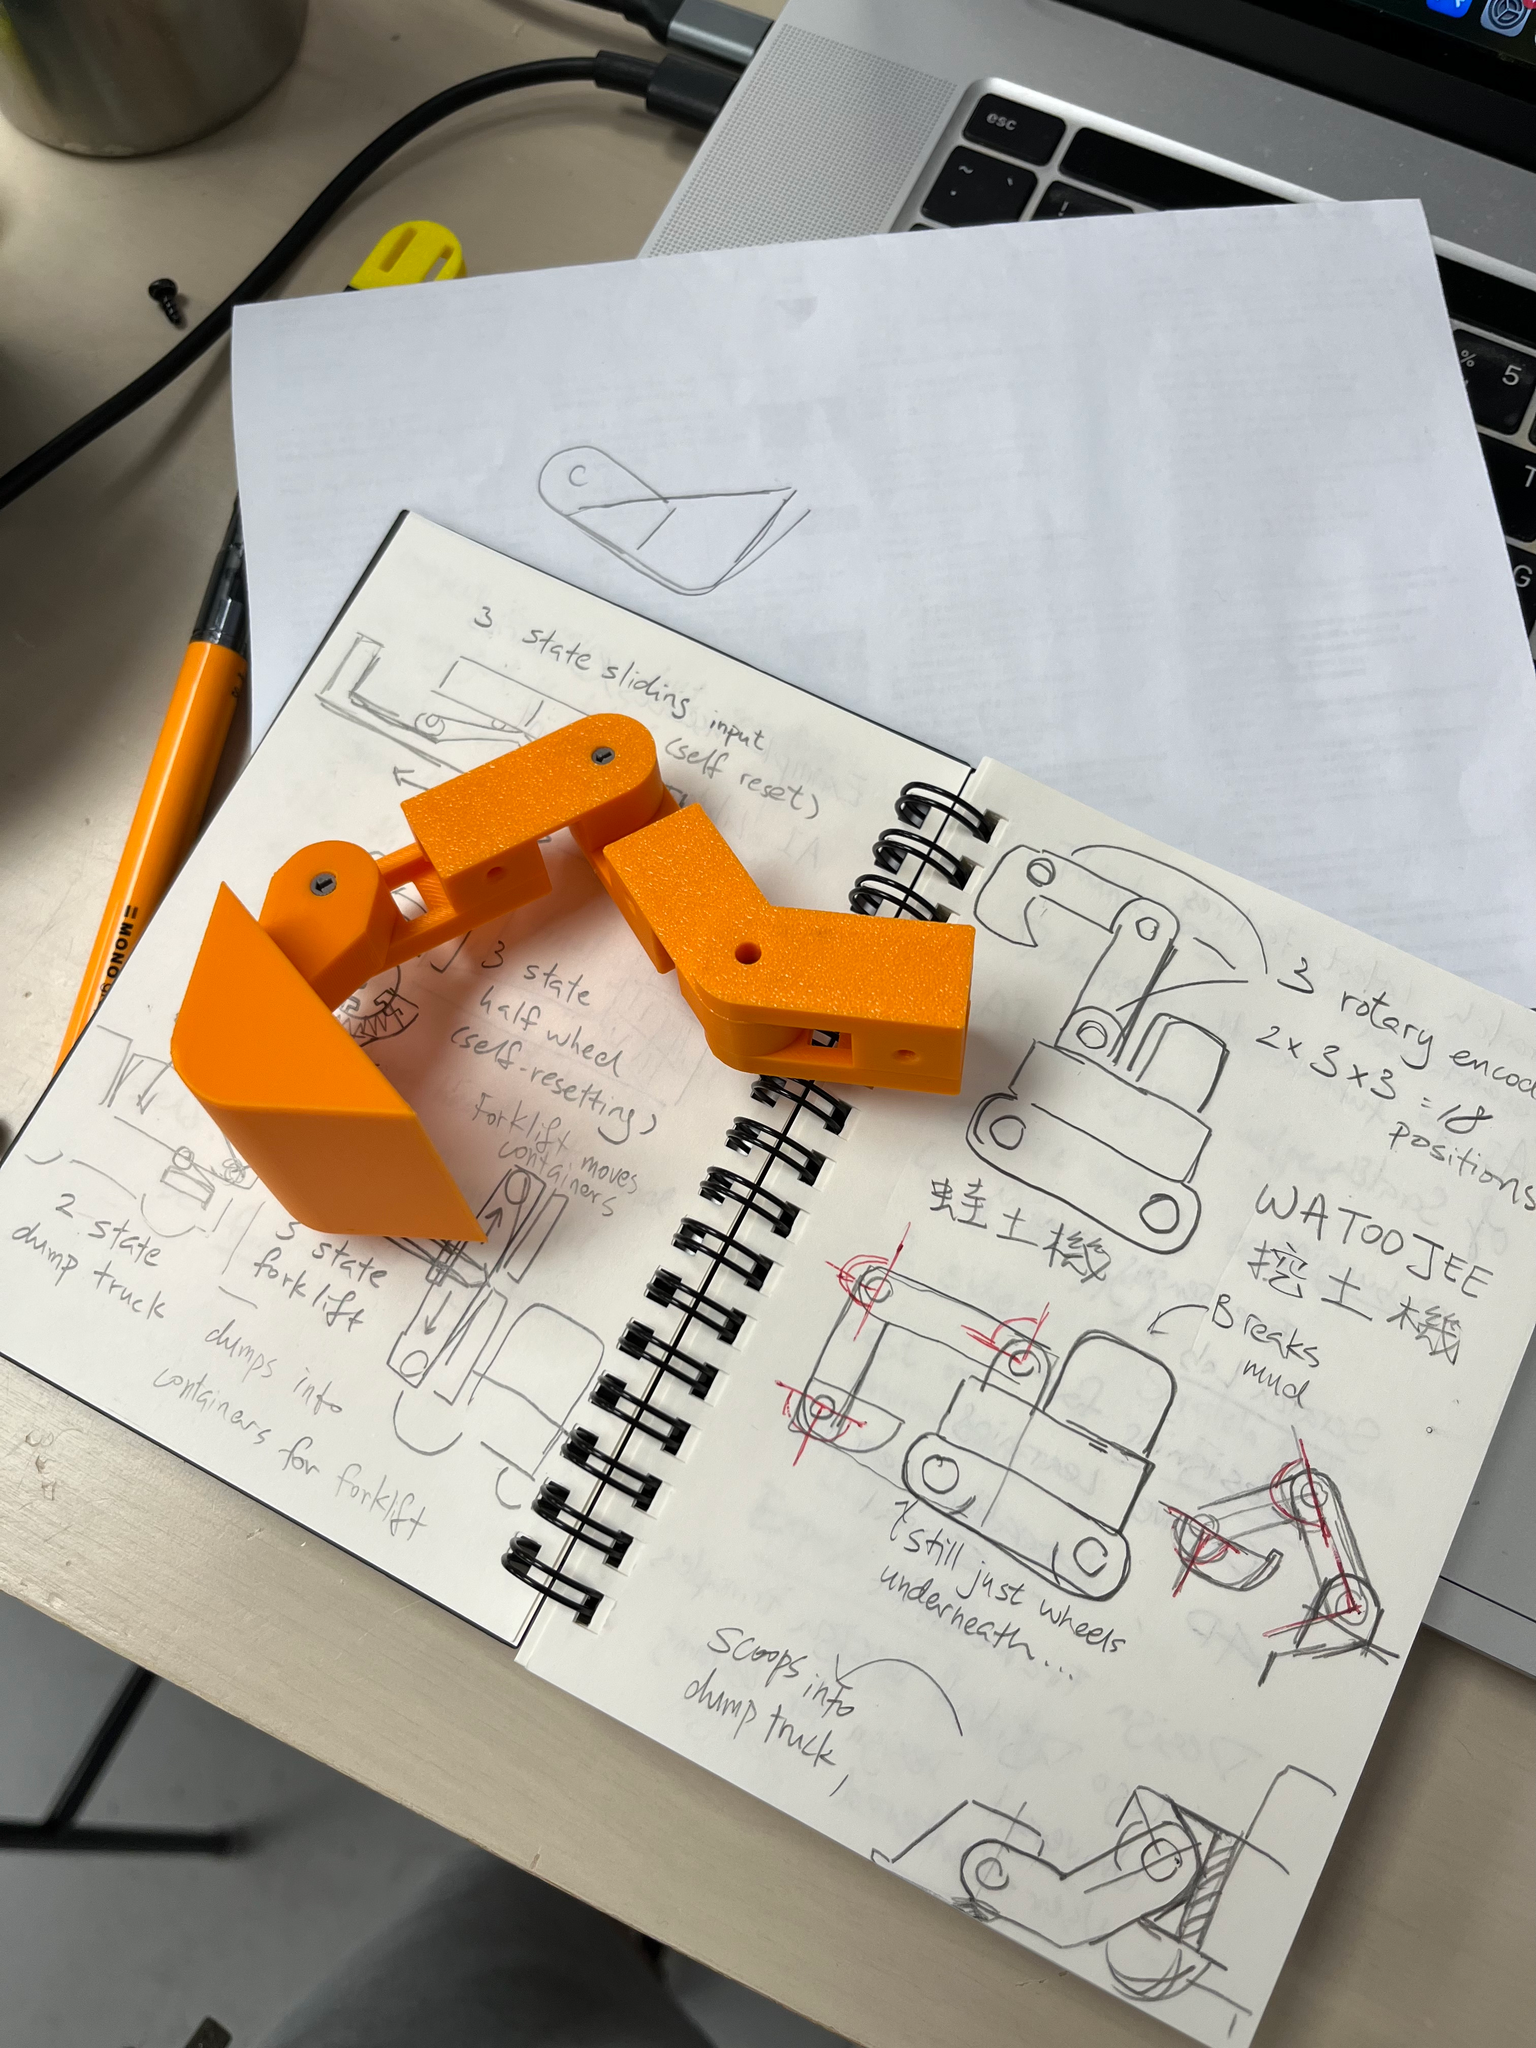 esc
~
`
!
%
5
T
G
MONO
C
3 state sliding input
(self reset)
3 state
half wheel
(self-resetting)
Forklift moves
containers
2 state
dump truck
3 state
forklift
dumps into
containers for forklift
3 rotary encod
2 x 3 x 3 = 18
positions
蛙土機
WATOOJEE
挖土機
Breaks
mud
still just wheels
underneath...
Scoops into
dump truck,